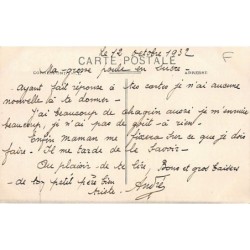 le 12 octobre 1932
Ma grosse poule en sucre -
CARTE POSTALE
- Ayant fait réponse à tes cartes je n'ai aucune
nouvelle à te donner -
J'ai beaucoup de chagrin aussi je m'ennuie
beaucoup, je n'ai pas de goût à rien -
Enfin maman me fixera sur ce que je dois
faire - Il me tarde de le savoir -
Au plaisir de te lire Bons et gros baisers
- de ton petit père bien
triste - André
F